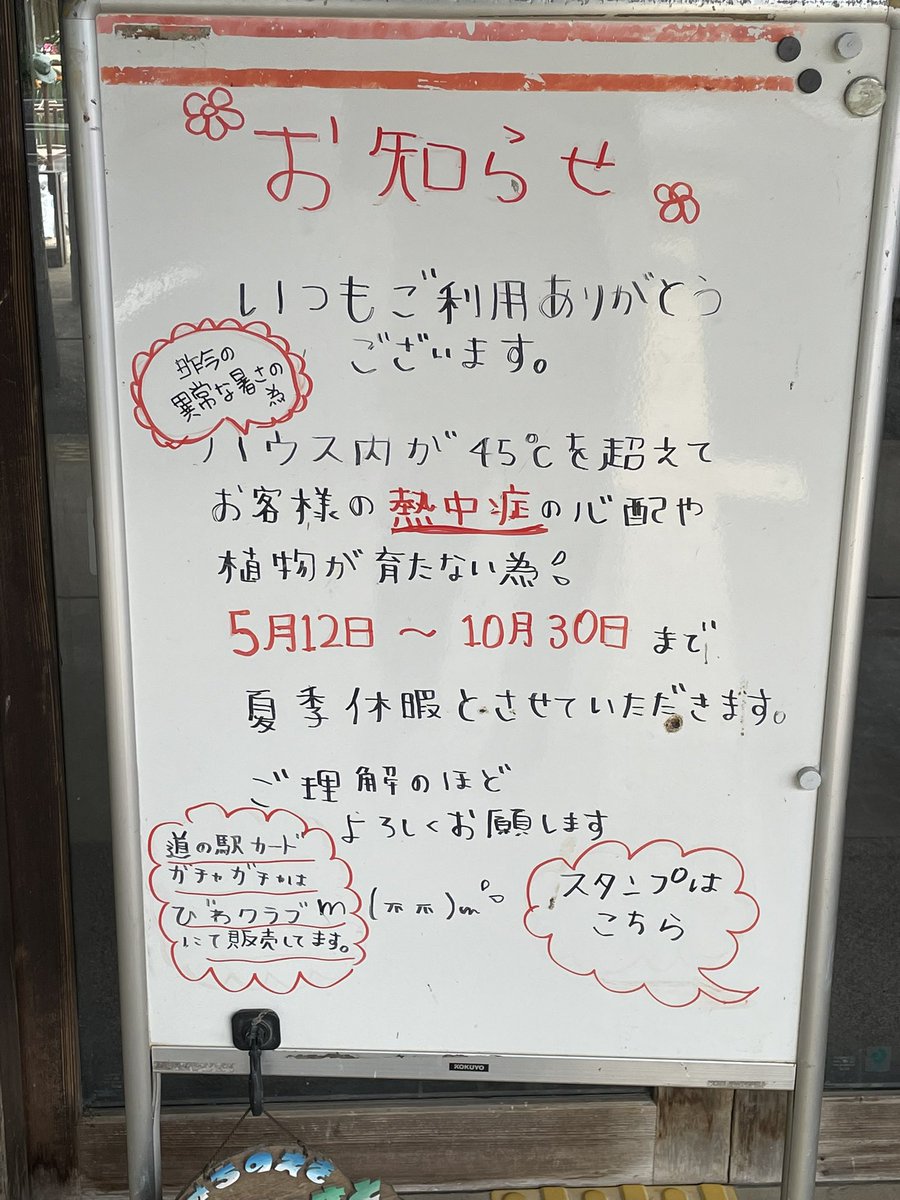 お知らせ
いつもご利用ありがとう
ございます。
昨今の
異常な暑さの
為
ハウス内が45℃を超えて
お客様の熱中症の心配や
植物が育たない為。
5月12日 ～ 10月30日 まで
夏季休暇とさせていただきます。
ご理解のほど
よろしくお願します
m(ㅠㅠ)m
道の駅カード
ガチャガチャは
びわクラブ
にて販売してます。
スタンプは
こちら
KOKUYO
ちのえき